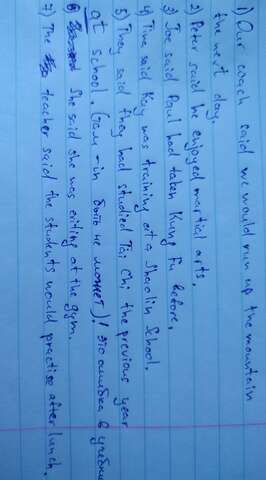 1) Our coach said we would run up the mountain
the next day.
2) Peter said he enjoyed martial arts.
3) Joe said Paul had taken Kung Fu before.
4) Tina said Kay was training at a Shaolin School.
5) They said they had studied Tai Chi the previous year
at school. (Gam -in быть не может)! это ошибка в учебнике
6) She said she was eating at the gym.
7) The teacher said the students would practise after lunch.